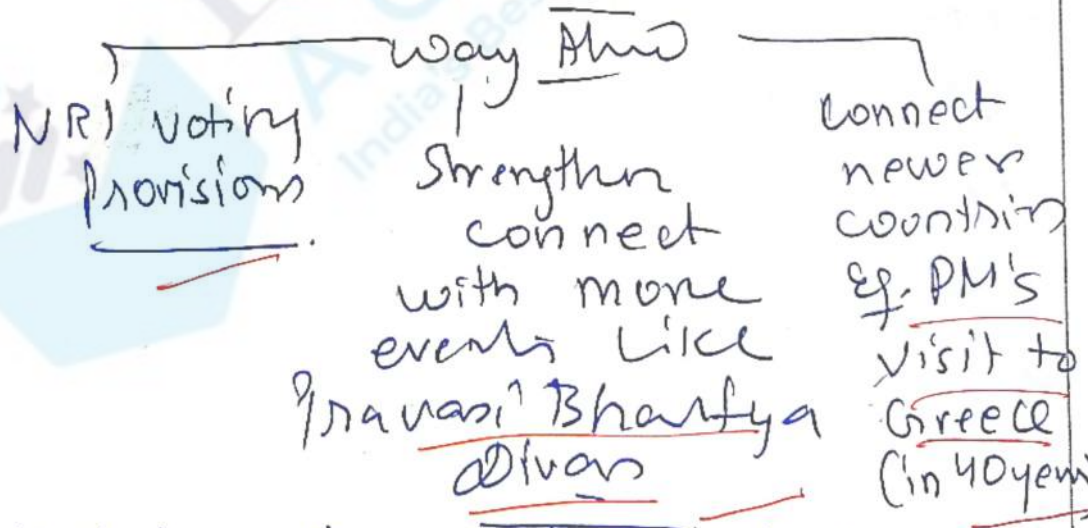 Way Ahead
NRI voting
Provisions
Strengthen
connect
with more
events like
Pravasi Bhartiya
Divas
connect
newer
countries
Eg. PM's
visit to
Greece
(in 40 years
India's Bes